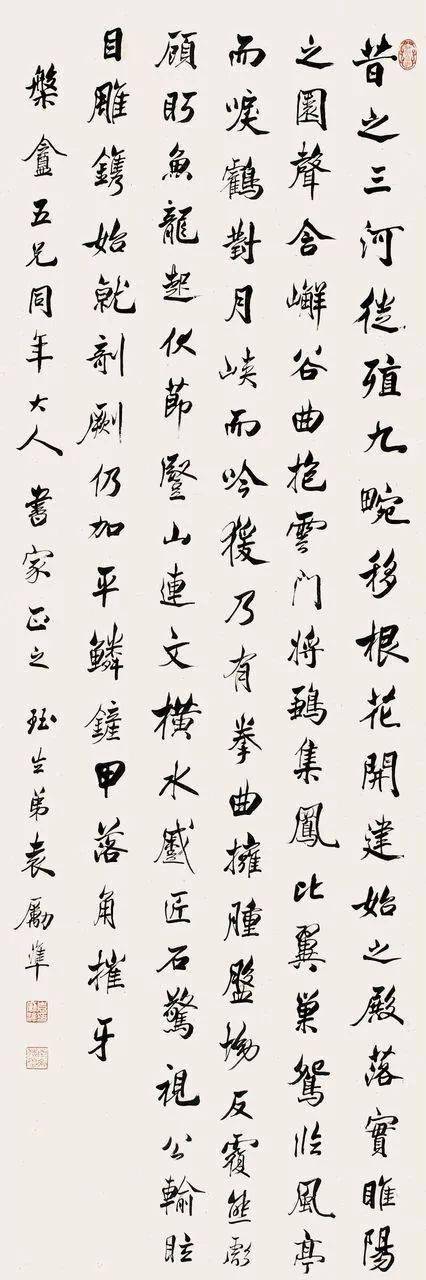 昔之三河徙殖九畹移根花開建始之殿落實睢陽
之園聲含嶰谷曲抱雲門將鶵集鳳比翼巢鴛临風亭
而唳鸛對月峽而吟猨乃有拳曲擁腫盤坳反覆熊彪
顧盼魚龍起伏節豎山連文橫水蹙匠石驚視公輸眩
目雕鐫始就剞劂仍加平鱗鏟甲落角摧牙
槃盦五兄同年大人 書家正之 珏生弟袁勵準